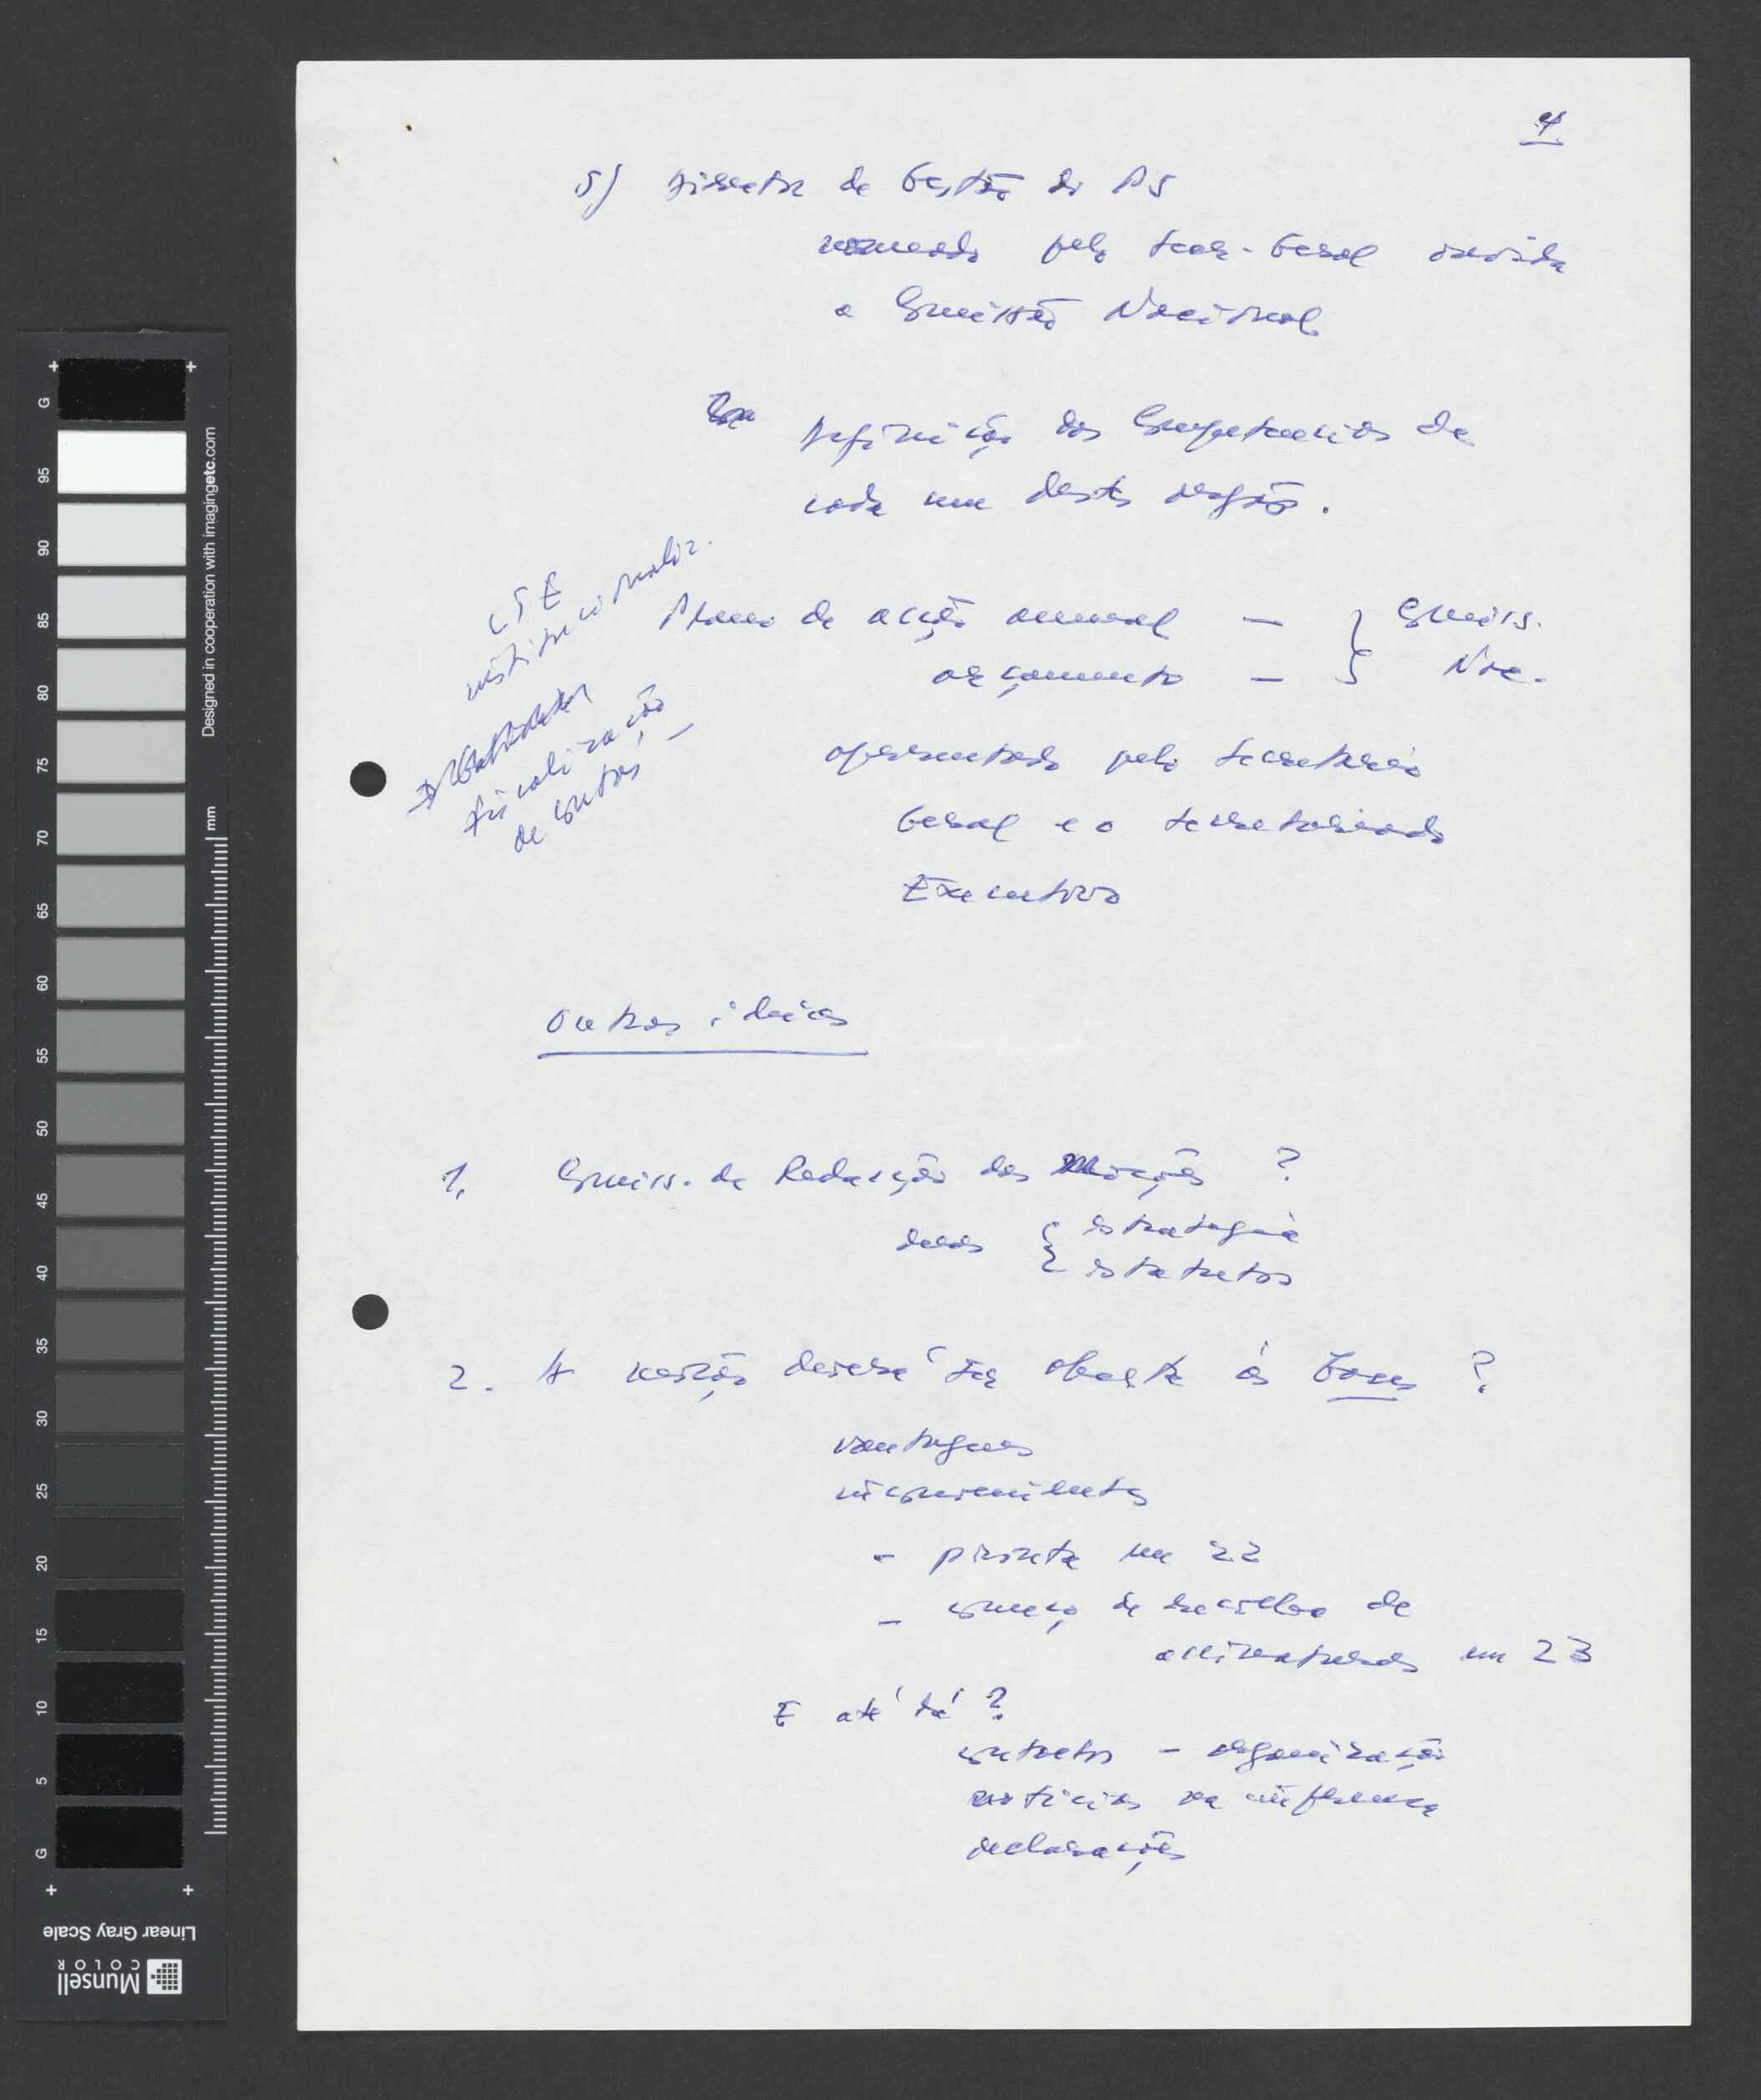 4
5) Director de Gestão do PS
nomeado pelo Secr-Geral ouvida
a Comissão Nacional
Definição das Competencias de
cada um destes orgãos.
CSE
institucionaliz.
fiscalização
de contas
Plano de acção annual — } Comiss.
orçamento — } Nac.
apresentado pelo Secretário
Geral e o Secretariado
Executivo
Outras ideias
1. Comiss. de Redacção das Moções ?
duas { estrategia
estatutos
2. A moção deverá ser aberta às bases ?
vantagens
inconvenientes
- pronta em 22
- começo de recolha de
assinaturas em 23
E até lá ?
contactos - organização
noticias na imprensa
declarações
G
95
90
85
80
75
70
65
60
55
50
45
40
35
30
25
20
15
10
5
G
mm
Designed in cooperation with imagingetc.com
Linear Gray Scale
Munsell
COLOR